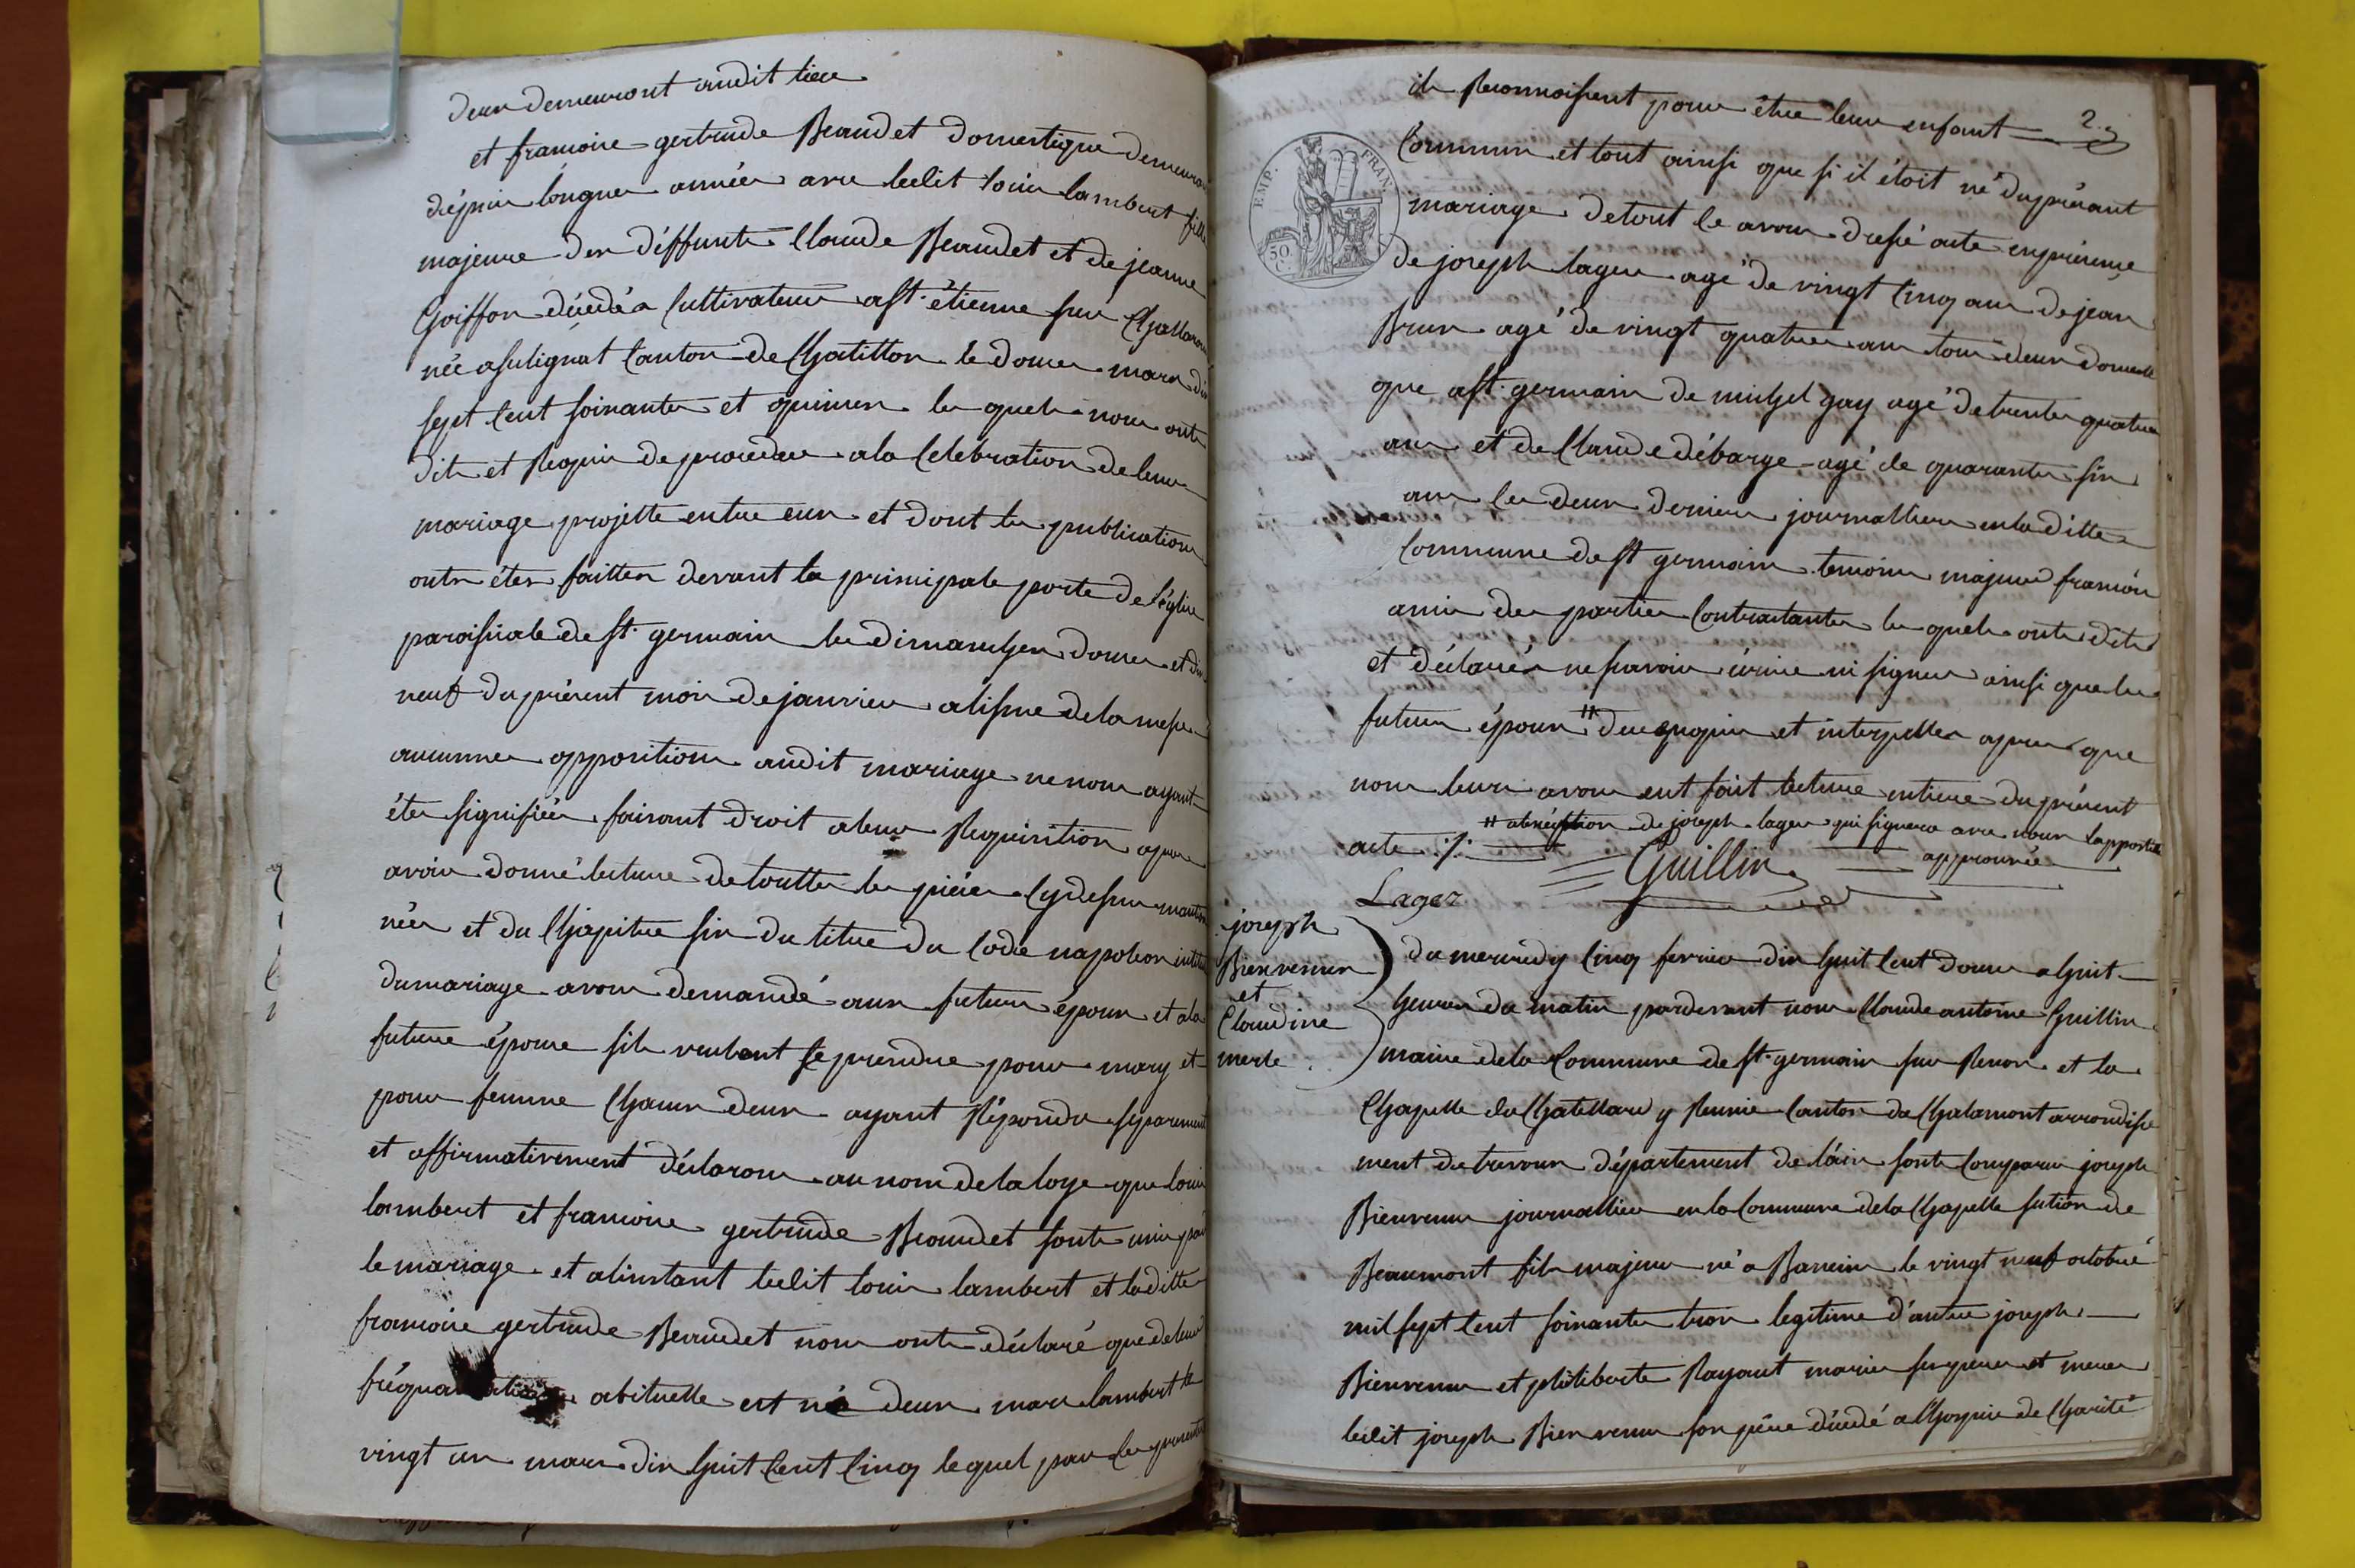 deux demeurant audit lieu
et francoise gertrude Beaudet domestique demeurant
dépuis longues années avec ledit louis lambert fille
majeure des déffunts Claude Beaudet et de jeanne
Goiffon décédés Cultivateurs a st. étienne sur Challaron
née a sulignat Canton de Chatillon le douze mars dix
sept Cent soixante et quinze les quels nous onts
dits et Requis de proceder a la Celebration de leur
mariage projetté entre eux et dont les publications
onts étes faittes devant la principale porte de l'église
paroissiale de st. germain les dimanches douze et dix
neuf du présent mois de janvier a lissue de la messe
aucunne opposition audit mariage ne nous ayant
étes signifiée faisant droit a leur Requisition apres
avoir donné lecture de touttes les piéces Cy dessus mention
nées et du Chapitre six du titre du Code napoleon intitulé
du mariage avons demandé aux futurs époux et a la
future épouse sils veulent se prendre pour mary et
pour femme Chacun deux ayant Répondu separement
et affirmativement déclarons au nom de la loye que louis
lambert et francoise gertrude Beaudet sonts unis par
le mariage et a linstant ledit louis lambert et laditte
francoise gertrude Beaudet nous onts déclaré que de leur
abituelle est né deux marc lambert le
vingt un mars dix huit Cent Cinq lequel par les presentes
2.
ils Reconnoissent pour être leur enfant
Commun et tout ainsi que si il étoit né du présant
mariage de tout ce avons dressé acte en présence
de joseph lager agé de vingt Cinq ans de jean
Brun agé de vingt quatre ans tous deux domesti
que a st. germain de michel gay agé de trente quatre
ans et de Claude débarge agé de quarante six
ans les deux derniers journalliers en laditte
Commune de st germain temoins majeurs francois
amis des parties Contractantes les quels onts dits
et déclarés ne savoir écrire ni signer ainsi que les
futurs époux # de ce requis et interpellés apres que
nous leurs avons eut fait lecture entiere du présent
# a lexéption de joseph lager qui signera avec nous lappostille
acte ./.
approuvée
Guillin
Lager
EMP. FRAN.
50 C.
joseph
Bienvenu
et
Claudine
merle
du mercredy Cinq fevrier dix huit Cent douze a huit
heures du matin pardevant nous Claude antoine Guillin
maire de la Commune de st. germain sur Renon et la
Chapelle du Chatellard y Reunie Canton de Chalamont arrondisse
ment de trevoux département de láin sonts Comparus joseph
Bienvenu journallier en la Commune de la Chapelle sution de
Beaumont fils majeur né a Baneins le vingt neuf octobre
mil sept Cent soixante trois legitime d'autre joseph
Bienvenu et philiberte Rayaut mariés ses pere et mere
ledit joseph Bienvenu son pére décédé a lhospice de Charité